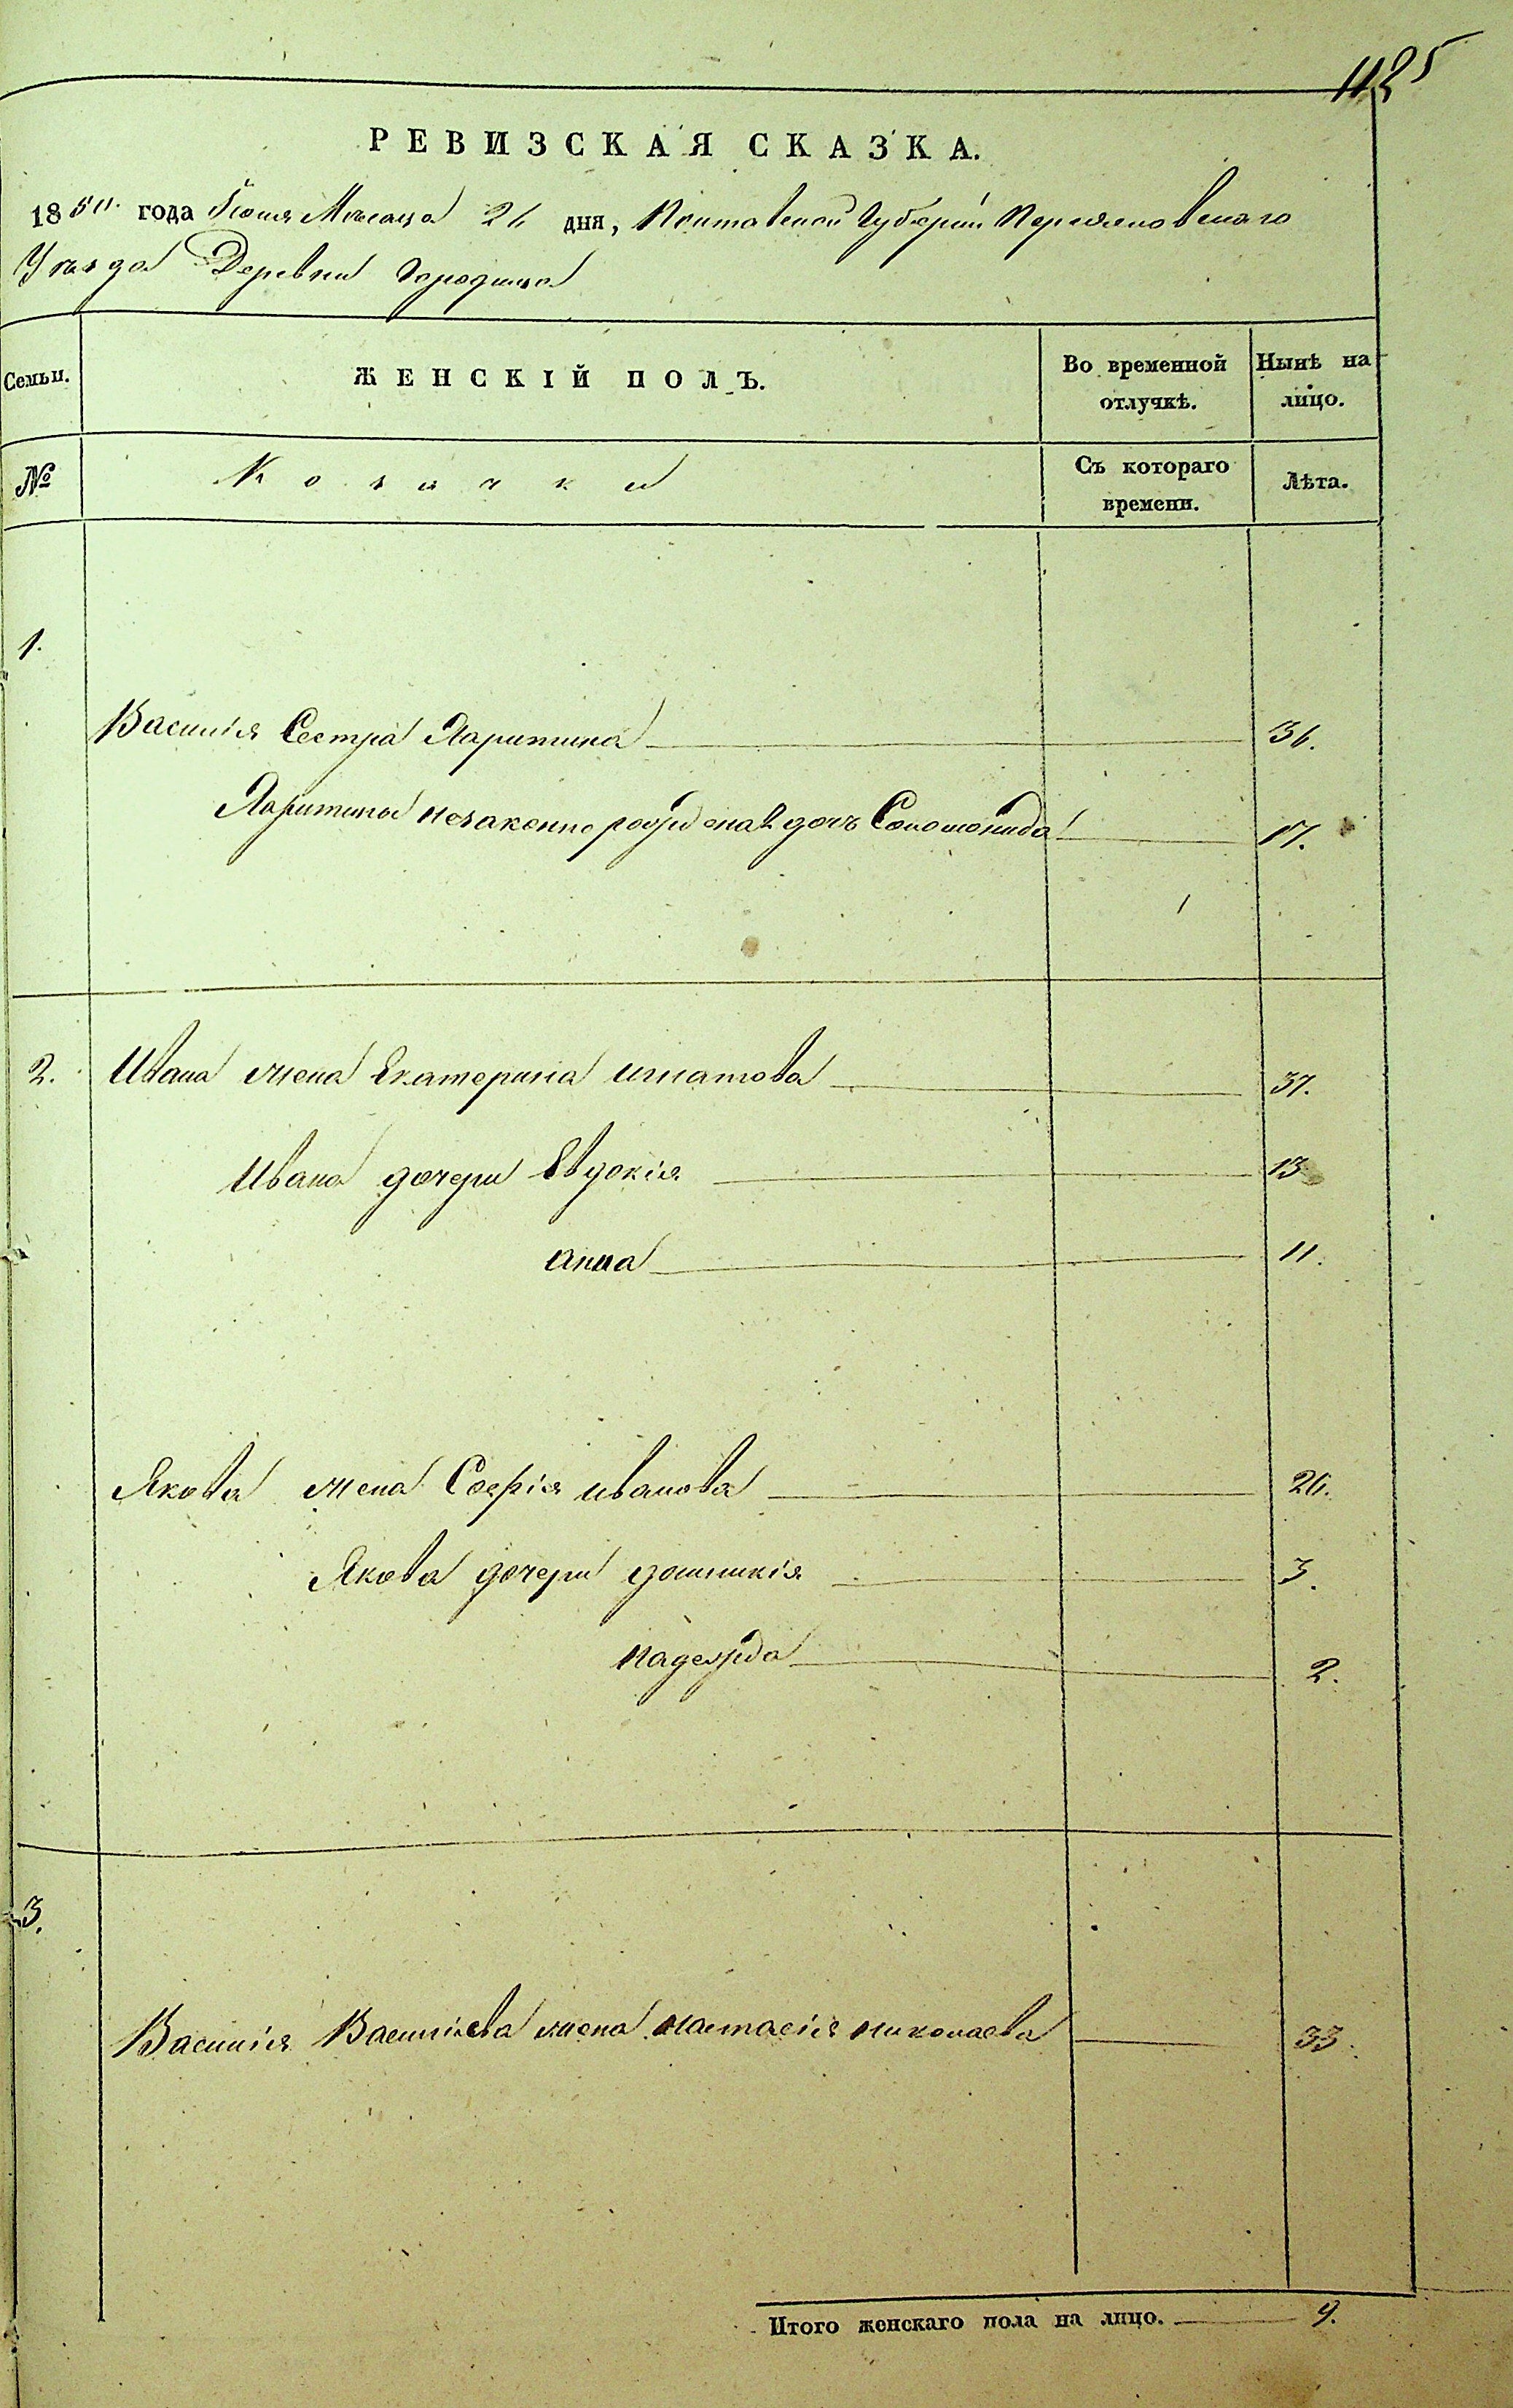 1125
РЕВИЗСКАЯ СКАЗКА.
1850. года Іюня Мѣсяца 26 дня, Полтавской Губерніи Переяславского
Уѣзда Деревни Городища
Семьи. ЖЕНСКІЙ ПОЛЪ. Во временной отлучкѣ. Нынѣ на лицо.
№ Козачки Съ котораго времени. Лѣта.
1.
Василія Сестра Харитина 36.
Харитины незаконно рожденая дочь Соломонида 17.
2. Ивана жена Екатерина игнатова 37.
Ивана дочери Евдокія 13
анна 11.
Якова жена Софія иванова 26.
Якова дочери домникія 3.
надежда 2.
3.
Василія Василіева жена настасія николаева 33.
Итого женскаго пола на лицо. 9.